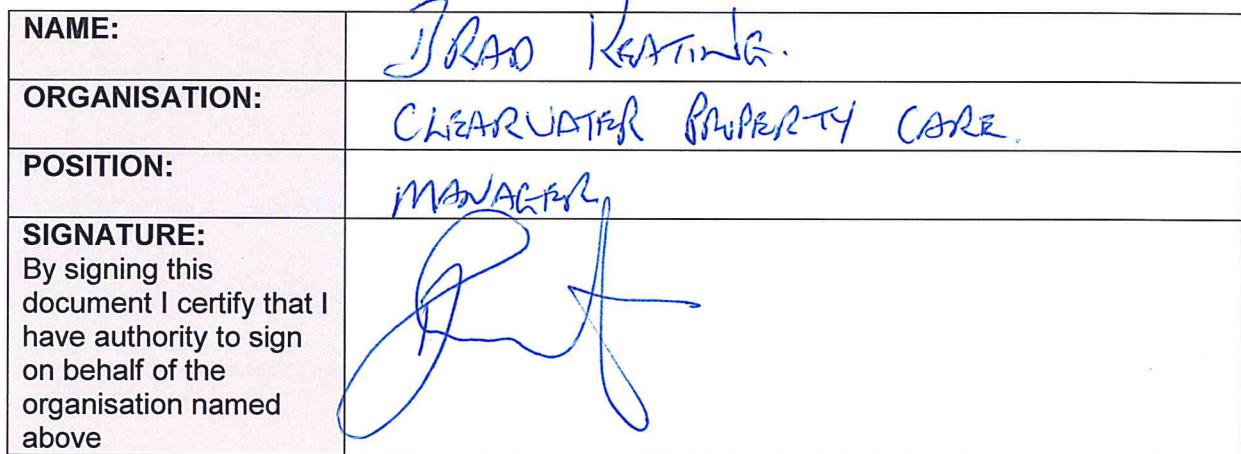 NAME:
BRAD KEATING.
ORGANISATION:
CLEARWATER PROPERTY CARE.
POSITION:
MANAGER
SIGNATURE:
By signing this
document I certify that I
have authority to sign
on behalf of the
organisation named
above